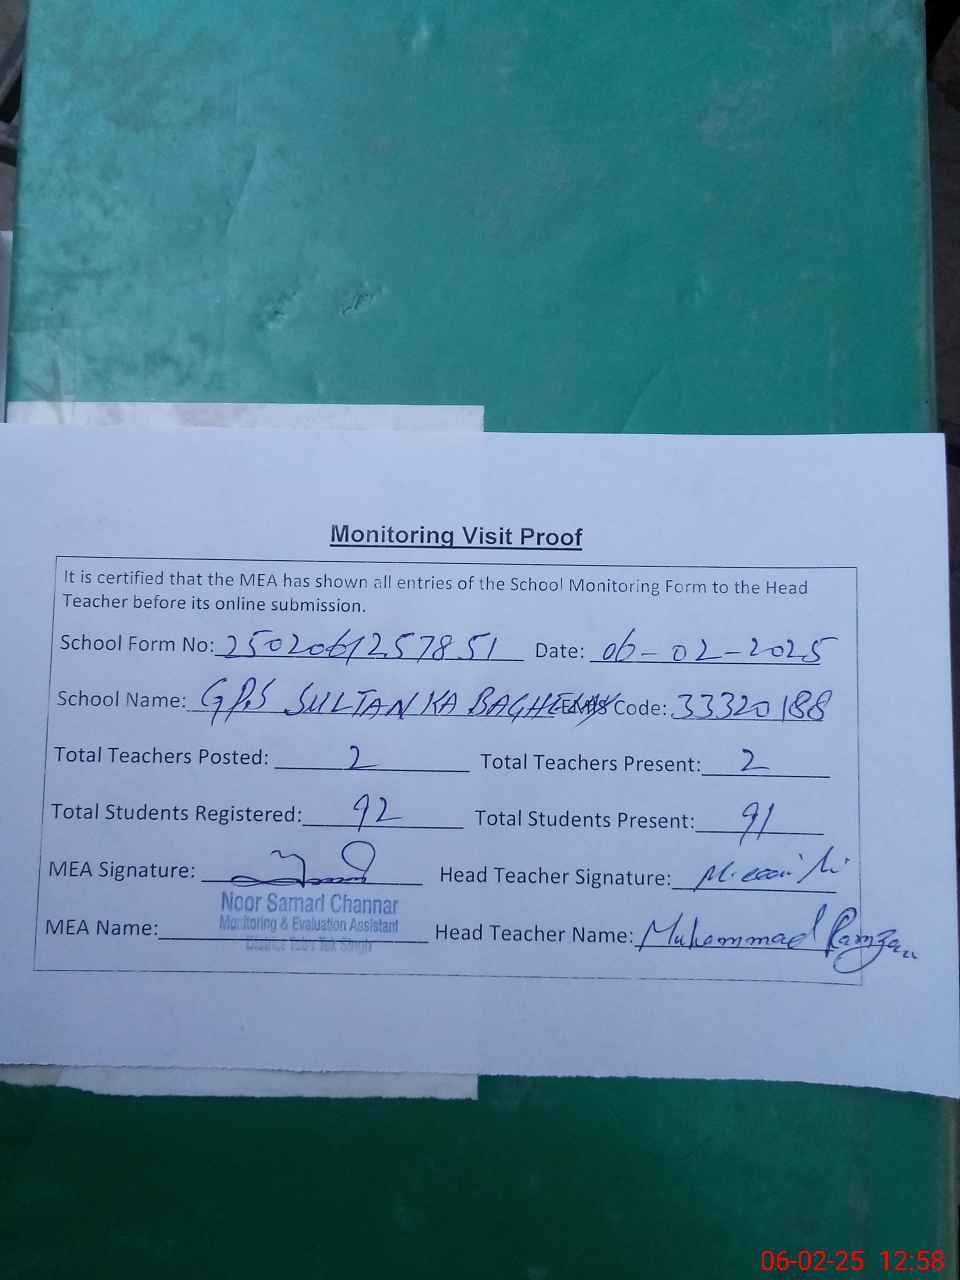 Monitoring Visit Proof
It is certified that the MEA has shown all entries of the School Monitoring Form to the Head
Teacher before its online submission.
School Form No: 2502061257851 Date: 06-02-2025
School Name: GPS SULTAN KA BAGH EMIS Code: 33320188
Total Teachers Posted: 2 Total Teachers Present: 2
Total Students Registered: 92 Total Students Present: 91
MEA Signature: Head Teacher Signature:
Noor Samad Channar
Monitoring & Evaluation Assistant
District Toba Tek Singh
MEA Name: Head Teacher Name: Muhammad Ramzan
06-02-25 12:58